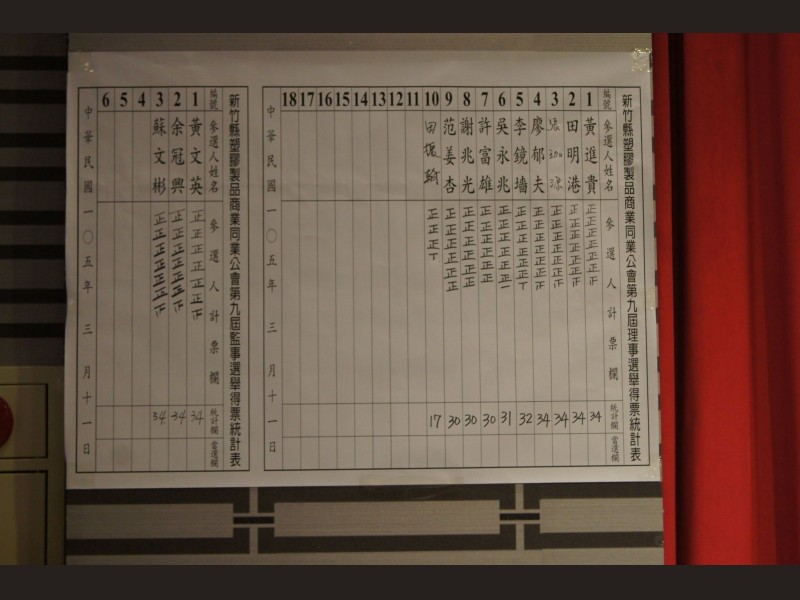 新竹縣塑膠製品商業同業公會第九屆理事選舉得票統計表
編號 參選人姓名 參選人計票欄 統計欄 當選欄
1 黃進貴 正正正正正正正 34
2 田明港 正正正正正正正 34
3 張 正正正正正正正 34
4 廖郁夫 正正正正正正正 34
5 李鏡墻 正正正正正正丅 32
6 吳永兆 正正正正正正一 31
7 許富雄 正正正正正正 30
8 謝兆光 正正正正正正 30
9 范姜杏 正正正正正正 30
10 田振 正正正丅 17
11
12
13
14
15
16
17
18
中華民國一〇五年三月十一日
新竹縣塑膠製品商業同業公會第九屆監事選舉得票統計表
編號 參選人姓名 參選人計票欄 統計欄 當選欄
1 黃文英 正正正正正正正 34
2 余冠興 正正正正正正正 34
3 蘇文彬 正正正正正正正 34
4
5
6
中華民國一〇五年三月十一日